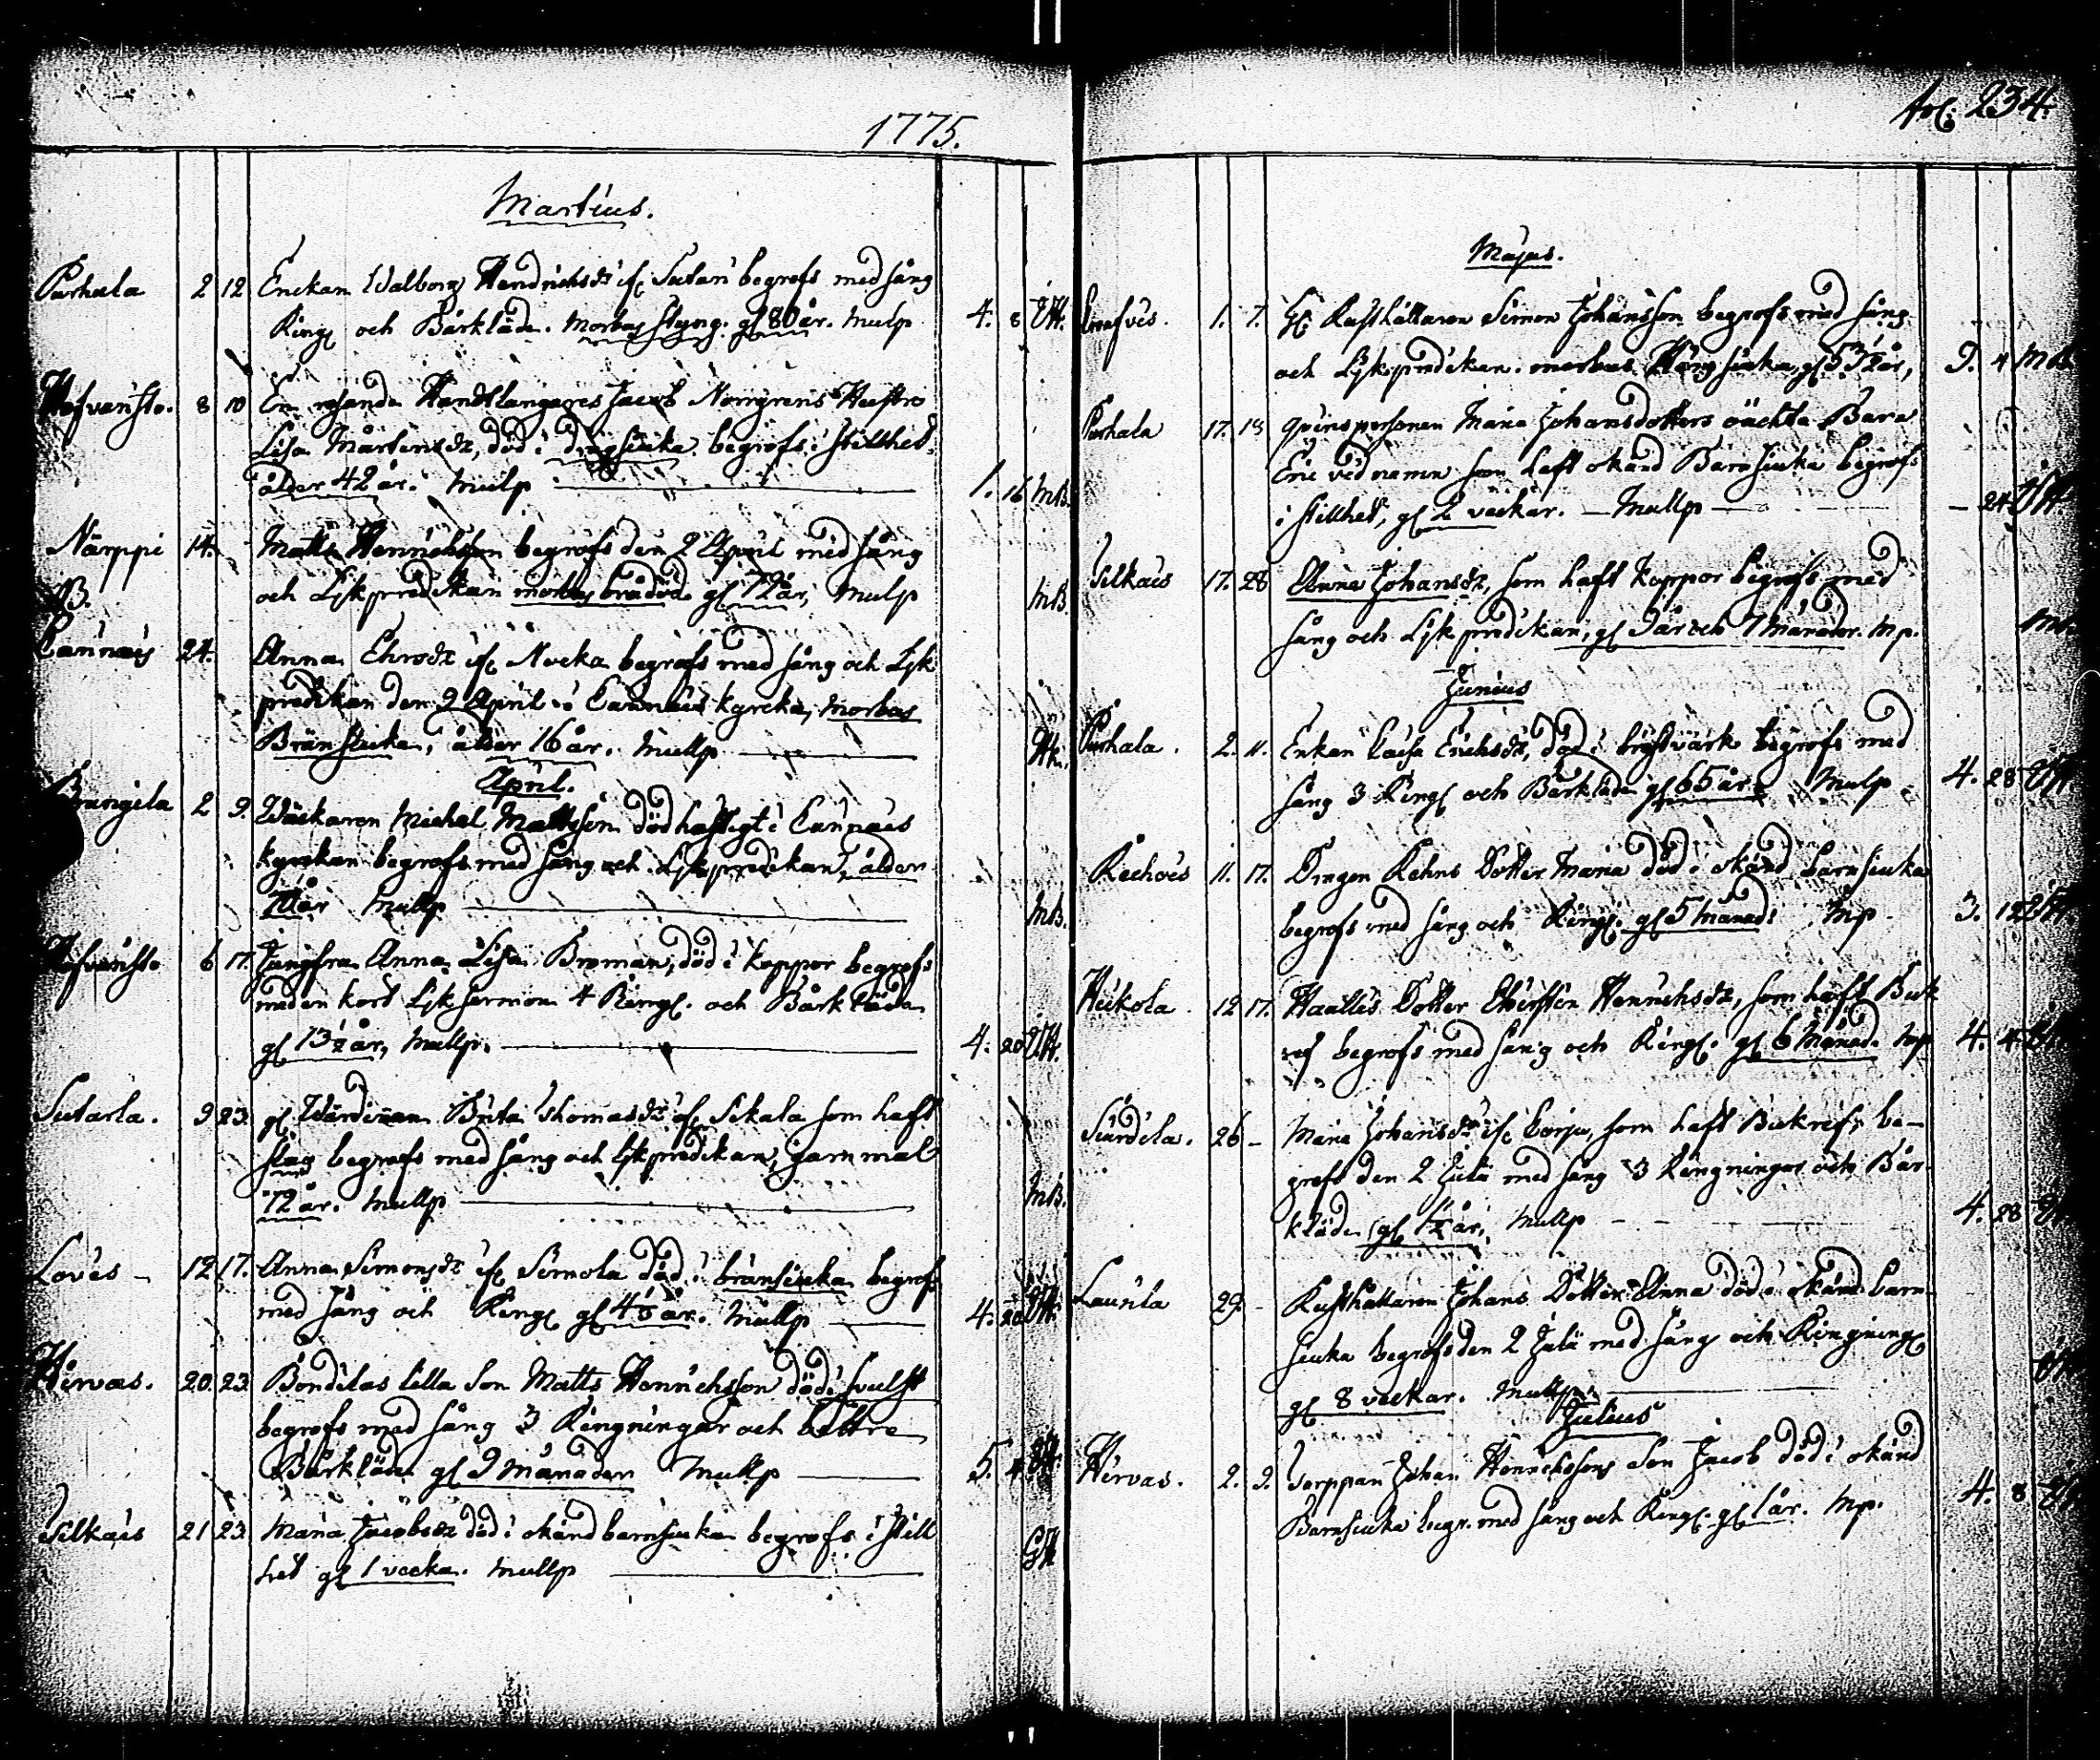 1775.
Martius.
Purhala 2 12 Enckan Walborg Hendrichsdr if: Sutari begrofs med sång
Ring: och Bårkläde. Morbus Styng. gl 80 år. Mulp 4. 8
Hofvansto. 8 10 En resande Handtlangares Jacob Norrgrens Hustro
Lisa Mårtensdr, död i dragsiuka begrofs i stillhet
ålder 42 år. Mulp 1. 16 MB.
Närppi 14. Matts Henrichsson begrofs den 2 April med sång
och Lijkpredikan morbus brådöd gl 72 år, Mulp MB.
24. Anna Ehrsdr if: Nocka begrofs med sång och Lijk
predikan den 9 April i Cannäis kyrcka, Morbus
Bränsiuka, ålder 16 år. Mullp
April.
2 9. Wäckaren Michel Mattsson död hastigt i Cannäis
kyrckan begrofs med sång och Lijkpredikan, ålder
år Mullp MB.
Hofvansto 6 17. Jungfru Anna Lisa Broman, död i koppor begrofs
med en kort Lijksermon 4 Ring:. och Bårkläde
gl 13½ år, Mullp. 4. 20
Sutarla. 9 23. gl Wärdinnan Brita Thomasdr if: Sikala som haft
slag begrofs med sång och Lijkpredikan, gammal
72 år. Mullp MB.
Loves 12 17. Anna Simonsdr if: Simola död i bränsiuka begrofs
med sång och Ring: gl år. Mullp 4. 20
Hirvas. 20. 23. Bondelas lilla Son Matts Henrichsson död i svulst
begrofs med sång 3 Ringningar och bättre
Bårkläde gl 9 Månader Mullp 5.
Silkäis 21 23. Maria Jacobsdr död i okänd barnsiuka begrofs i still
het gl 1 vecka. Mullp
fol: 234.
Majus.
1. 7. Gl: Rusthållaren Simon Johansson begrofs med sång
och Lijkpredikan. morbus siuka, gl 53½ år, 9. 4 MB
Purhala 17. Qvinspersonen Maria Johansdotters oächta Barn
Eric vid namn som haft okänd Barnsiuka begrofs
i stillhet, gl 2 veckar. Mullp 24
Silkäis 17. 28 Anna Johansdr, som haft koppor begrofs med
sång och Lijkpredikan, gl 9 år och 7 Månader. Mp.
Junius
Purhala. 2. 11. Enkan Caisa Erichsdr, död i bröstvärk begrofs med
sång 3 Ring: och Bårkläde gl 65 år Mulp 4. 28
11. 17. Drengen Dotter Maria död i okänd barnsiuka
begrofs med sång och Ring:. gl 5 Månad: Mp 3. 12
Heikola 12 17. Dotter Christin Henrichsdr, som haft Buk
ref begrofs med sång och Ring:. gl 6 Månad. Mp 4. 4.
Siurdila. 26 Maria Johansdr if: som haft Bukref, be-
grofs den 2 Julii med sång 3 Ringningar och Bår
kläde gl 1½ år, Mullp 4. 28
Launla 29. Rusthållaren Johans Dotter Anna död i okänd barn-
siuka begrofs den 2 Julii med sång och Ringning:
gl 8 veckar. Mullp.
Julius
Hirvas. 2. 9. Torppan Johan Henrichssons Son Jacob död i okänd
Barnsiuka begr. med sång och Ring:. gl 1 år. Mp. 4. 8